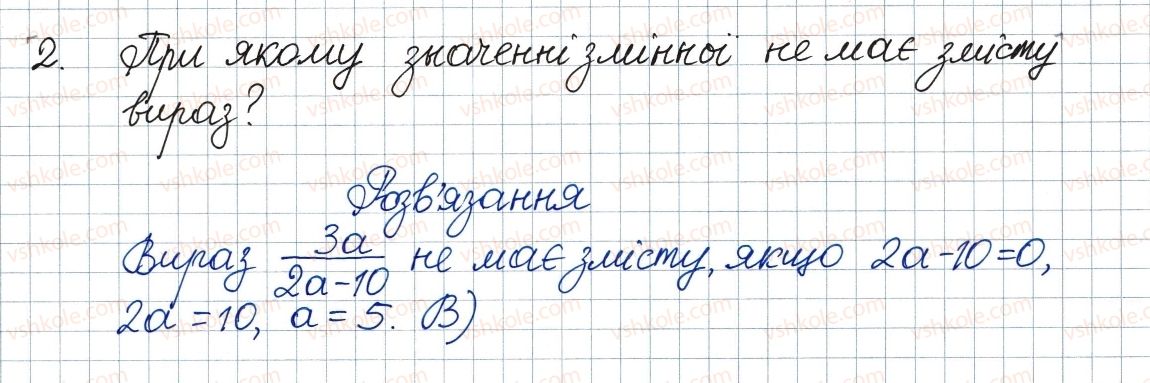 2. При якому значенні змінної не має змісту
вираз?
Розв'язання
Вираз 3a/(2a-10) не має змісту, якщо 2a-10=0,
2a=10, a=5. В)